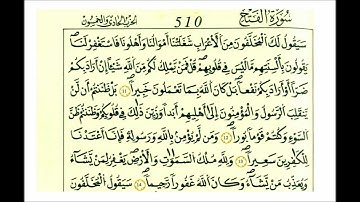 سُورَةُ الْفَتْحِ 510 الحزب الحادي والخمسون
سَيَقُولُ لَكَ الْمُخَلَّفُونَ مِنَ الْأَعْرَابِ شَغَلَتْنَا أَمْوَالُنَا وَأَهْلُونَا فَاسْتَغْفِرْ لَنَا
يَقُولُونَ بِأَلْسِنَتِهِم مَّا لَيْسَ فِي قُلُوبِهِمْ قُلْ فَمَن يَمْلِكُ لَكُم مِّنَ اللَّهِ شَيْئًا إِنْ أَرَادَ بِكُمْ
ضَرًّا أَوْ أَرَادَ بِكُمْ نَفْعًا بَلْ كَانَ اللَّهُ بِمَا تَعْمَلُونَ خَبِيرًا ١١ بَلْ ظَنَنتُمْ أَن لَّن
يَنقَلِبَ الرَّسُولُ وَالْمُؤْمِنُونَ إِلَى أَهْلِيهِمْ أَبَدًا وَزُيِّنَ ذَلِكَ فِي قُلُوبِكُمْ وَظَنَنتُمْ ظَنَّ
السَّوْءِ وَكُنتُمْ قَوْمًا بُورًا ١٢ وَمَن لَّمْ يُؤْمِن بِاللَّهِ وَرَسُولِهِ فَإِنَّا أَعْتَدْنَا
لِلْكَافِرِينَ سَعِيرًا ١٣ وَلِلَّهِ مُلْكُ السَّمَوَاتِ وَالْأَرْضِ يَغْفِرُ لِمَن يَشَاءُ
وَيُعَذِّبُ مَن يَشَاءُ وَكَانَ اللَّهُ غَفُورًا رَّحِيمًا ١٤ سَيَقُولُ الْمُخَلَّفُونَ